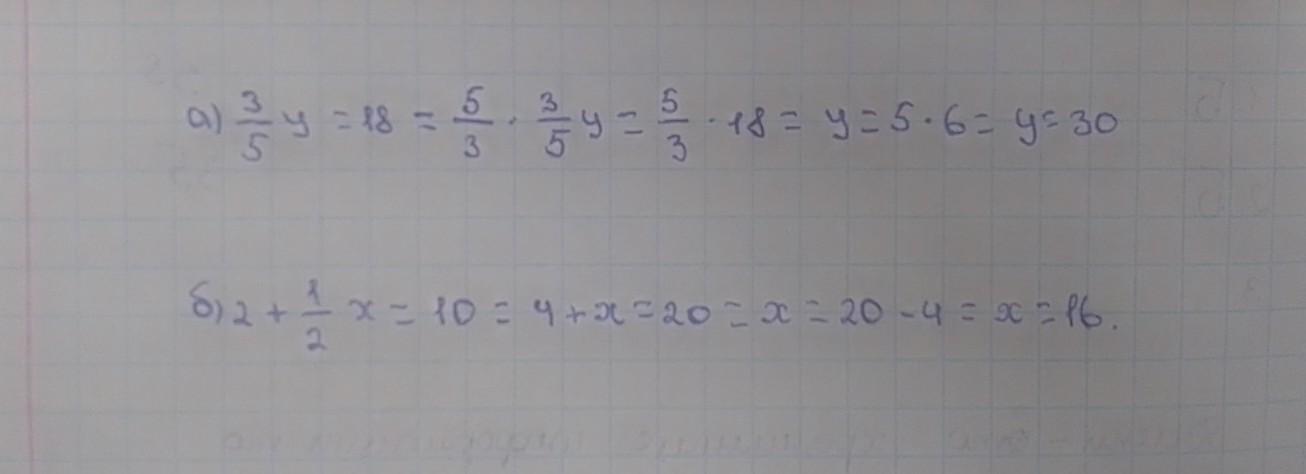 а) 3/5 y = 18 = 5/3 · 3/5 y = 5/3 · 18 = y = 5 · 6 = y = 30
б) 2 + 1/2 x = 10 = 4 + x = 20 = x = 20 - 4 = x = 16.